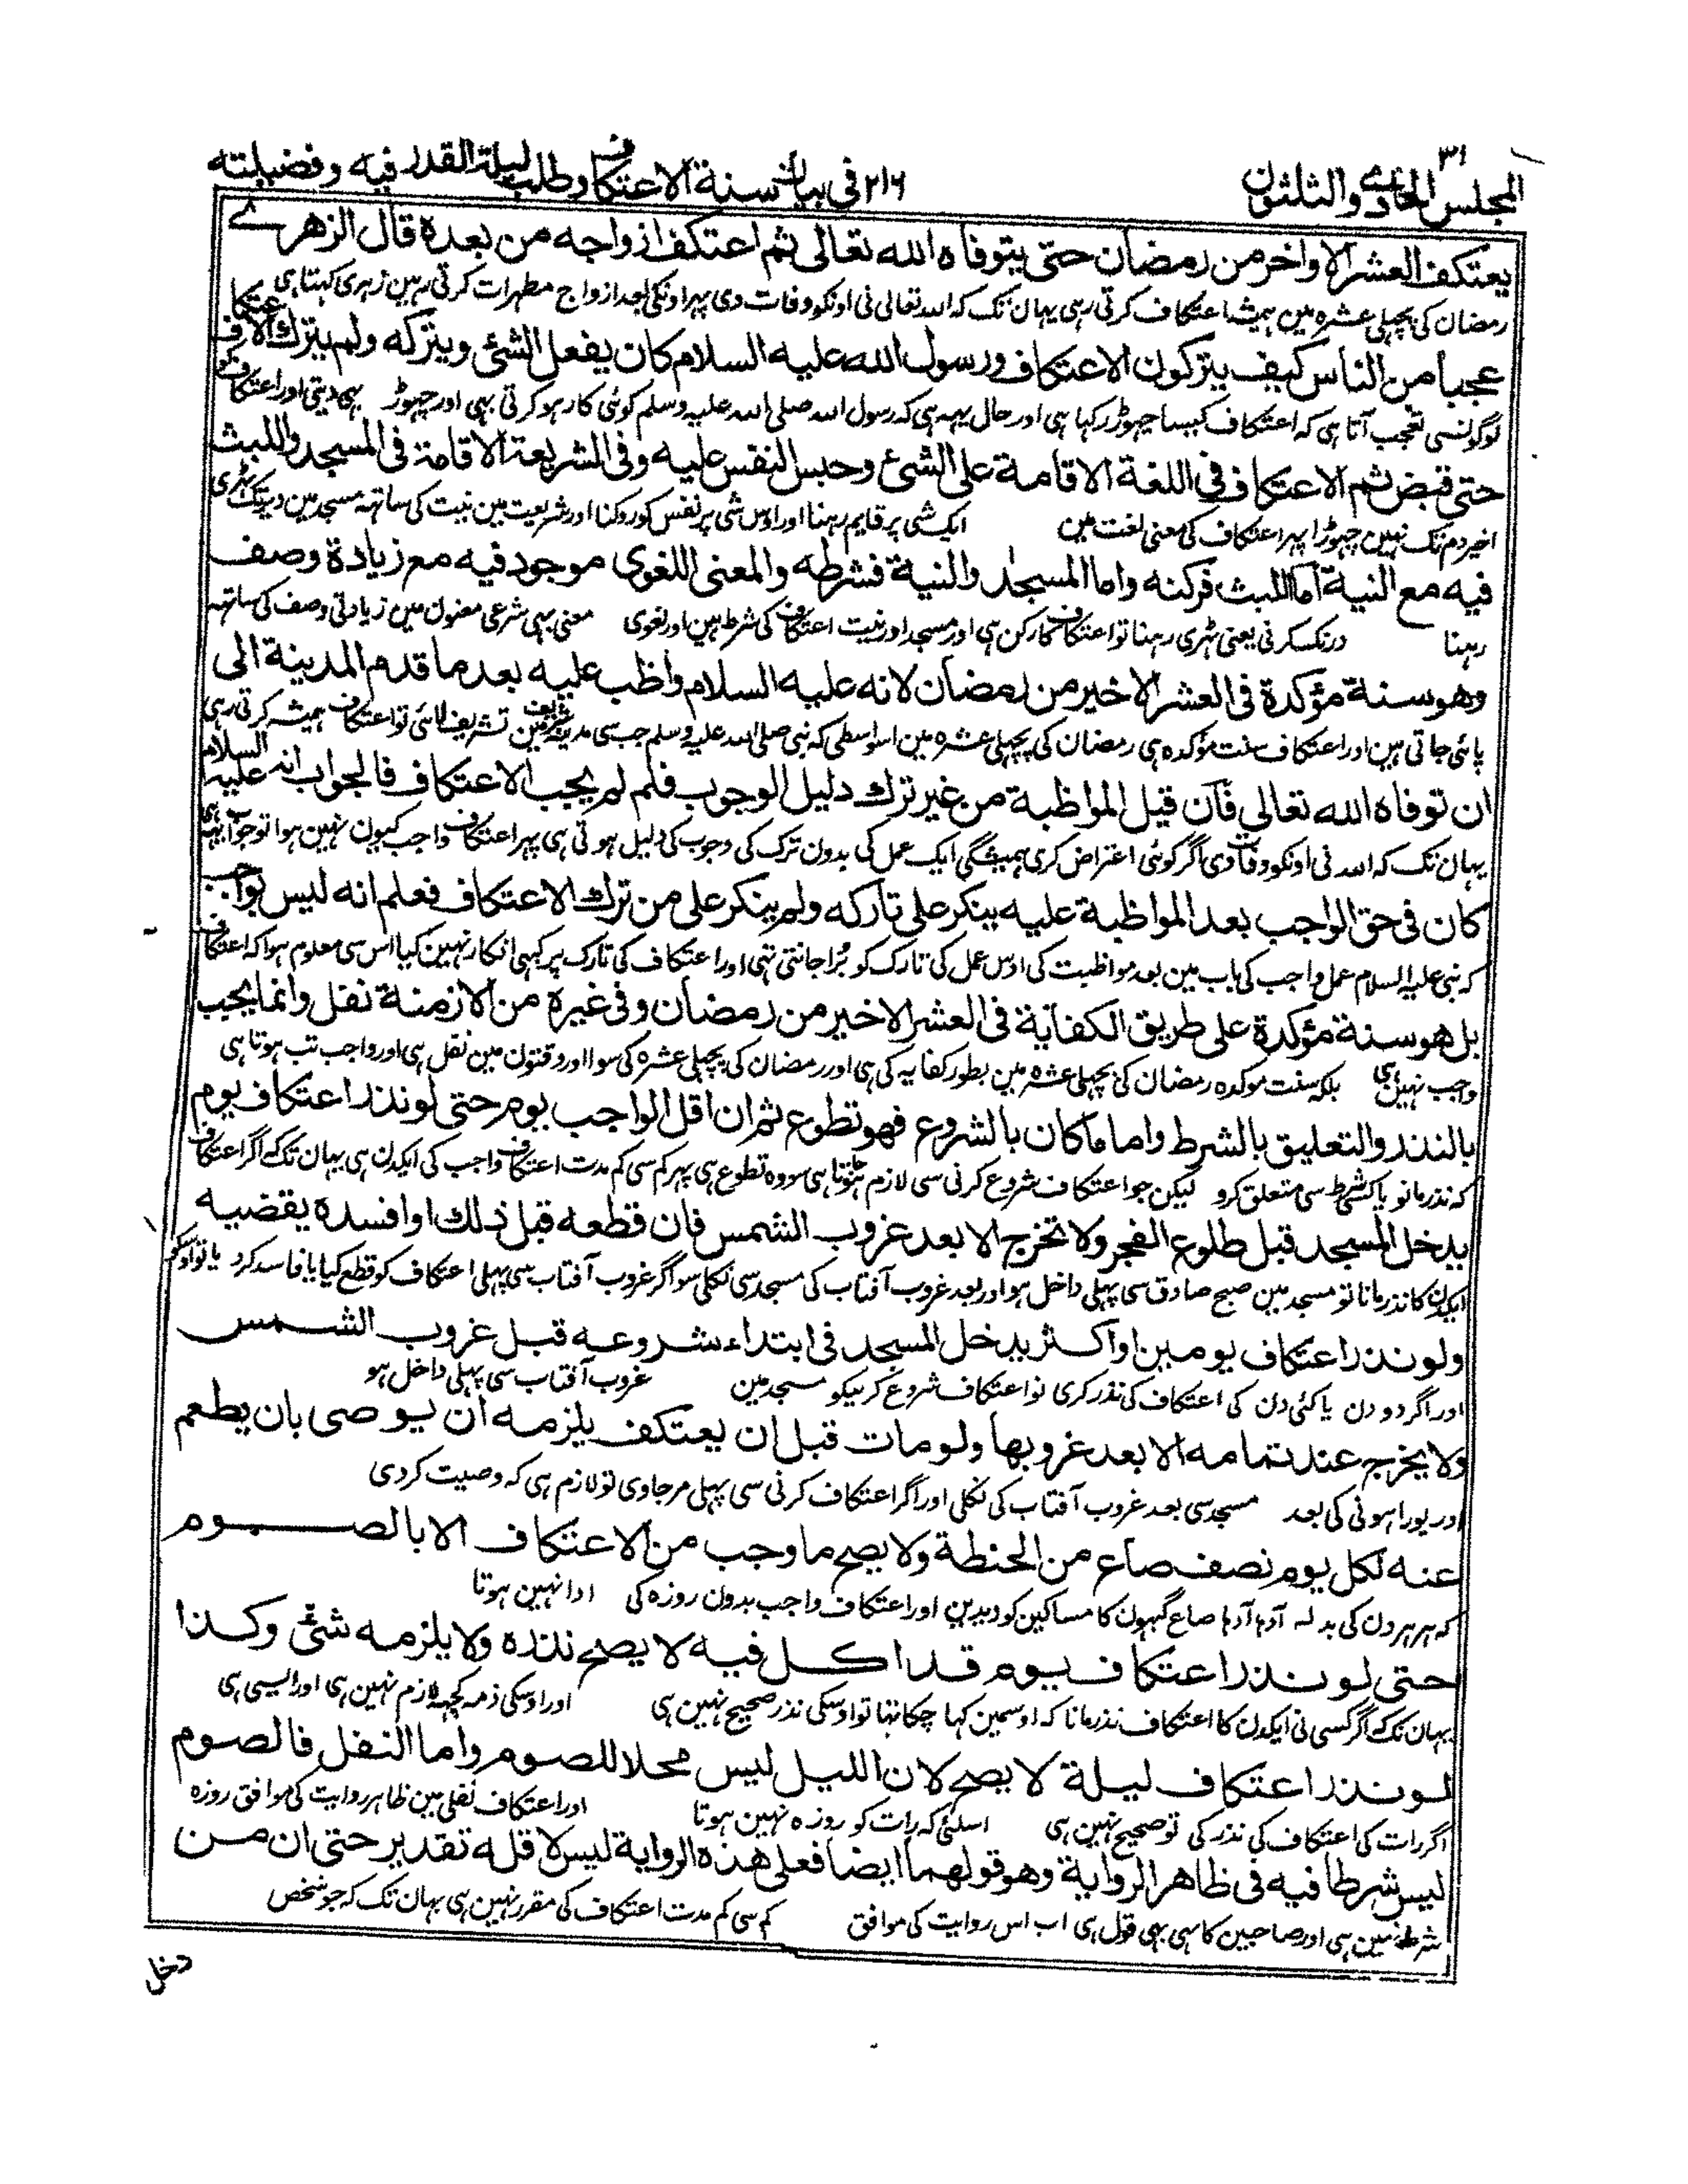 المجلس الحادي والثلثون ٣١ ٢١٦ في بيان سنة الاعتكاف وطلب ليلة القدر فيه وفضيلته
يعتكف العشر الاواخر من رمضان حتى يتوفاه الله تعالى ثم اعتكف ازواجه من بعده قال الزهرے
رمضان کی پچہلی عشرہ مین ہمیشہ اعتکاف کرتی رہی یہان تک کہ اللہ تعالی نی اونکو وفات دی پہر اونکی بعد ازواج مطہرات کرتی رہین زہری کہتا ہی
عجبا من الناس كيف يتركون الاعتكاف ورسول الله عليه السلام كان يفعل الشئ ويتركه ولم يترك الاعتكاف
لوگونسی تعجب آتا ہی کہ اعتکاف کیسا چہوڑ رکہا ہی اور حال یہہ ہی کہ رسول اللہ صلی اللہ علیہ وسلم کوئی کار ہو کرتی بہی اور چہوڑ بہی دیتی اور اعتکاف کو
حتى قبض ثم الاعتكاف في اللغة الاقامة على الشئ وحبس النفس عليه وفى الشريعة الاقامة فى المسجد واللبث
اخیر دم تک نہین چہوڑا پہر اعتکاف کی معنی لغت مین ایک شی پر قایم رہنا اور اوس شی پر نفس کو روکنا اور شریعت مین نیت کی ساتہہ مسجد مین دیر تک ٹہری
فيه مع النية اما اللبث فركنه واما المسجد والنية فشرطه والمعنى اللغوى موجود فيه مع زيادة وصف
رہنا درنگ کرنی یعنی ٹہری رہنا تو اعتکاف کا رکن ہی اور مسجد اور نیت اعتکاف کی شرط ہین اور لغوی معنی بہی شرعی معنون مین زیادتی وصف کی ساتہہ
وهو سنة مؤكدة فى العشر الاخير من رمضان لانه عليه السلام واظب عليه بعد ما قدم المدينة الى
پائی جاتی ہین اور اعتکاف سنت مؤکدہ ہی رمضان کی پچہلی عشرہ مین اسواسطی کہ نبی صلی اللہ علیہ وسلم جب سی مدینہ شریف مین تشریف لائی تو اعتکاف ہمیشہ کرتی رہی
ان توفاه الله تعالى فان قيل المواظبة من غير ترك دليل الوجوب فلم لم يجب الاعتكاف فالجواب انه عليه السلام
یہان تک کہ اللہ نی اونکو وفات دی اگر کوئی اعتراض کری ہمیشگی ایک عمل کی بدون ترک کی وجوب کی دلیل ہوتی ہی پہر اعتکاف واجب کیون نہین ہوا تو جواب یہہ ہی
كان فى حق الواجب بعد المواظبة عليه ينكر على تاركه ولم ينكر على من ترك الاعتكاف فعلم انه ليس بواجب
کہ نبی علیہ السلام عمل واجب کی باب مین بعد مواظبت کی اوس عمل کی تارک کو بُرا جانتی تہی اور اعتکاف کی تارک پر کبہی انکار نہین کیا اس سی معلوم ہوا کہ اعتکاف
بل هو سنة مؤكدة على طريق الكفاية فى العشر الاخير من رمضان وفى غيره من الازمنة نفل وانما يجب
واجب نہین ہی بلکہ سنت موکدہ رمضان کی پچہلی عشرہ مین بطور کفایہ کی ہی اور رمضان کی پچہلی عشرہ کی سوا اور وقتون مین نفل ہی اور واجب تب ہوتا ہی
بالنذر والتعليق بالشرط واما ما كان بالشروع فهو تطوع ثم ان اقل الواجب يوم حتى لو نذر اعتكاف يوم
کہ نذر مانو یا کسی شرط سی متعلق کرو لیکن جو اعتکاف شروع کرنی سی لازم ہوتا ہی سو وہ تطوع ہی پہر کم سی کم مدت اعتکاف واجب کی ایکدن ہی یہان تک کہ اگر اعتکاف
يدخل المسجد قبل طلوع الفجر ولا تخرج الا بعد غروب الشمس فان قطعه قبل ذلك او افسده يقضيه
ایکدن کا نذر مانا تو مسجد مین صبح صادق سی پہلی داخل ہو اور بعد غروب آفتاب کی مسجد سی نکلی سو اگر غروب آفتاب سی پہلی اعتکاف کو قطع کیا یا فاسد کرد یا تو اوسکو
ولو نذر اعتكاف يومين او اكثر يدخل المسجد فى ابتداء شروعه قبل غروب الشمس
اور اگر دو دن یا کئی دن کی اعتکاف کی نذر کری تو اعتکاف شروع کرنیکو مسجد مین غروب آفتاب سی پہلی داخل ہو
ولا يخرج عند تمامه الا بعد غروبها ولو مات قبل ان يعتكف يلزمه ان يوصى بان يطعم
اور پورا ہونی کی بعد مسجد سی بعد غروب آفتاب کی نکلی اور اگر اعتکاف کرنی سی پہلی مرجاوی تو لازم ہی کہ وصیت کردی
عنه لكل يوم نصف صاع من الحنطة ولا يصح ما وجب من الاعتكاف الا بالصوم
کہ ہر ہر دن کی بدلہ آدہا آدہا صاع گیہون کا مساکین کو دیدین اور اعتکاف واجب بدون روزہ کی ادا نہین ہوتا
حتى لو نذر اعتكاف يوم قد اكل فيه لا يصح نذره ولا يلزمه شئ وكذا
یہان تک کہ اگر کسی نی ایکدن کا اعتکاف نذر مانا کہ اوسمین کہا چکا تہا تو اوسکی نذر صحیح نہین ہی اور اوسکی ذمہ کچہہ لازم نہین ہی اور ایسی ہی
لو نذر اعتكاف ليلة لا يصح لان الليل ليس محلا للصوم واما النفل فالصوم
اگر رات کی اعتکاف کی نذر کی تو صحیح نہین ہی اسلئی کہ رات کو روزہ نہین ہوتا اور اعتکاف نفلی مین ظاہر روایت کی موافق روزہ
ليس شرطا فيه فى ظاهر الرواية وهو قولهما ايضا فعلى هذه الرواية ليس لاقله تقدير حتى ان من
شرط نہین ہی اور صاحبین کا بہی یہی قول ہی اب اس روایت کی موافق کم سی کم مدت اعتکاف کی مقرر نہین ہی یہان تک کہ جو شخص
دخل